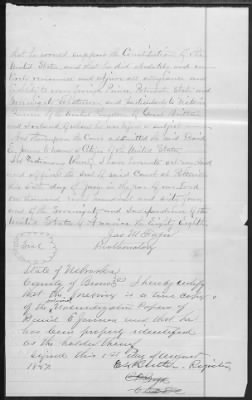 that he would support the Constitution of the
United States, and that he did absolutely and
renounce and abjure all allegiance and
fidelity to every foreign Prince, Potentate, State and
Sovereignty whatsoever, and particularly to Victoria
Queen of the United Kingdom of Great Britain
and Ireland of whom he was before a subject
the Court admitted the said David
E. Jones a Citizen of the United States
In Testimony Whereof I have hereunto set my hand
and affixed the seal of said Court at
this sixth day of June in the year of our Lord
one thousand eight hundred and sixty four
and of the Sovereignty and Independence of the
United States of America the Eighty Eighth
Seal
Prothonotary
State of Nebraska
County of Brown I hereby certify
that the foregoing is a true copy
of the Naturalization Papers of
David E. and that he
has been properly identified
as the holder thereof
Signed this 1st day of August
1887 Register